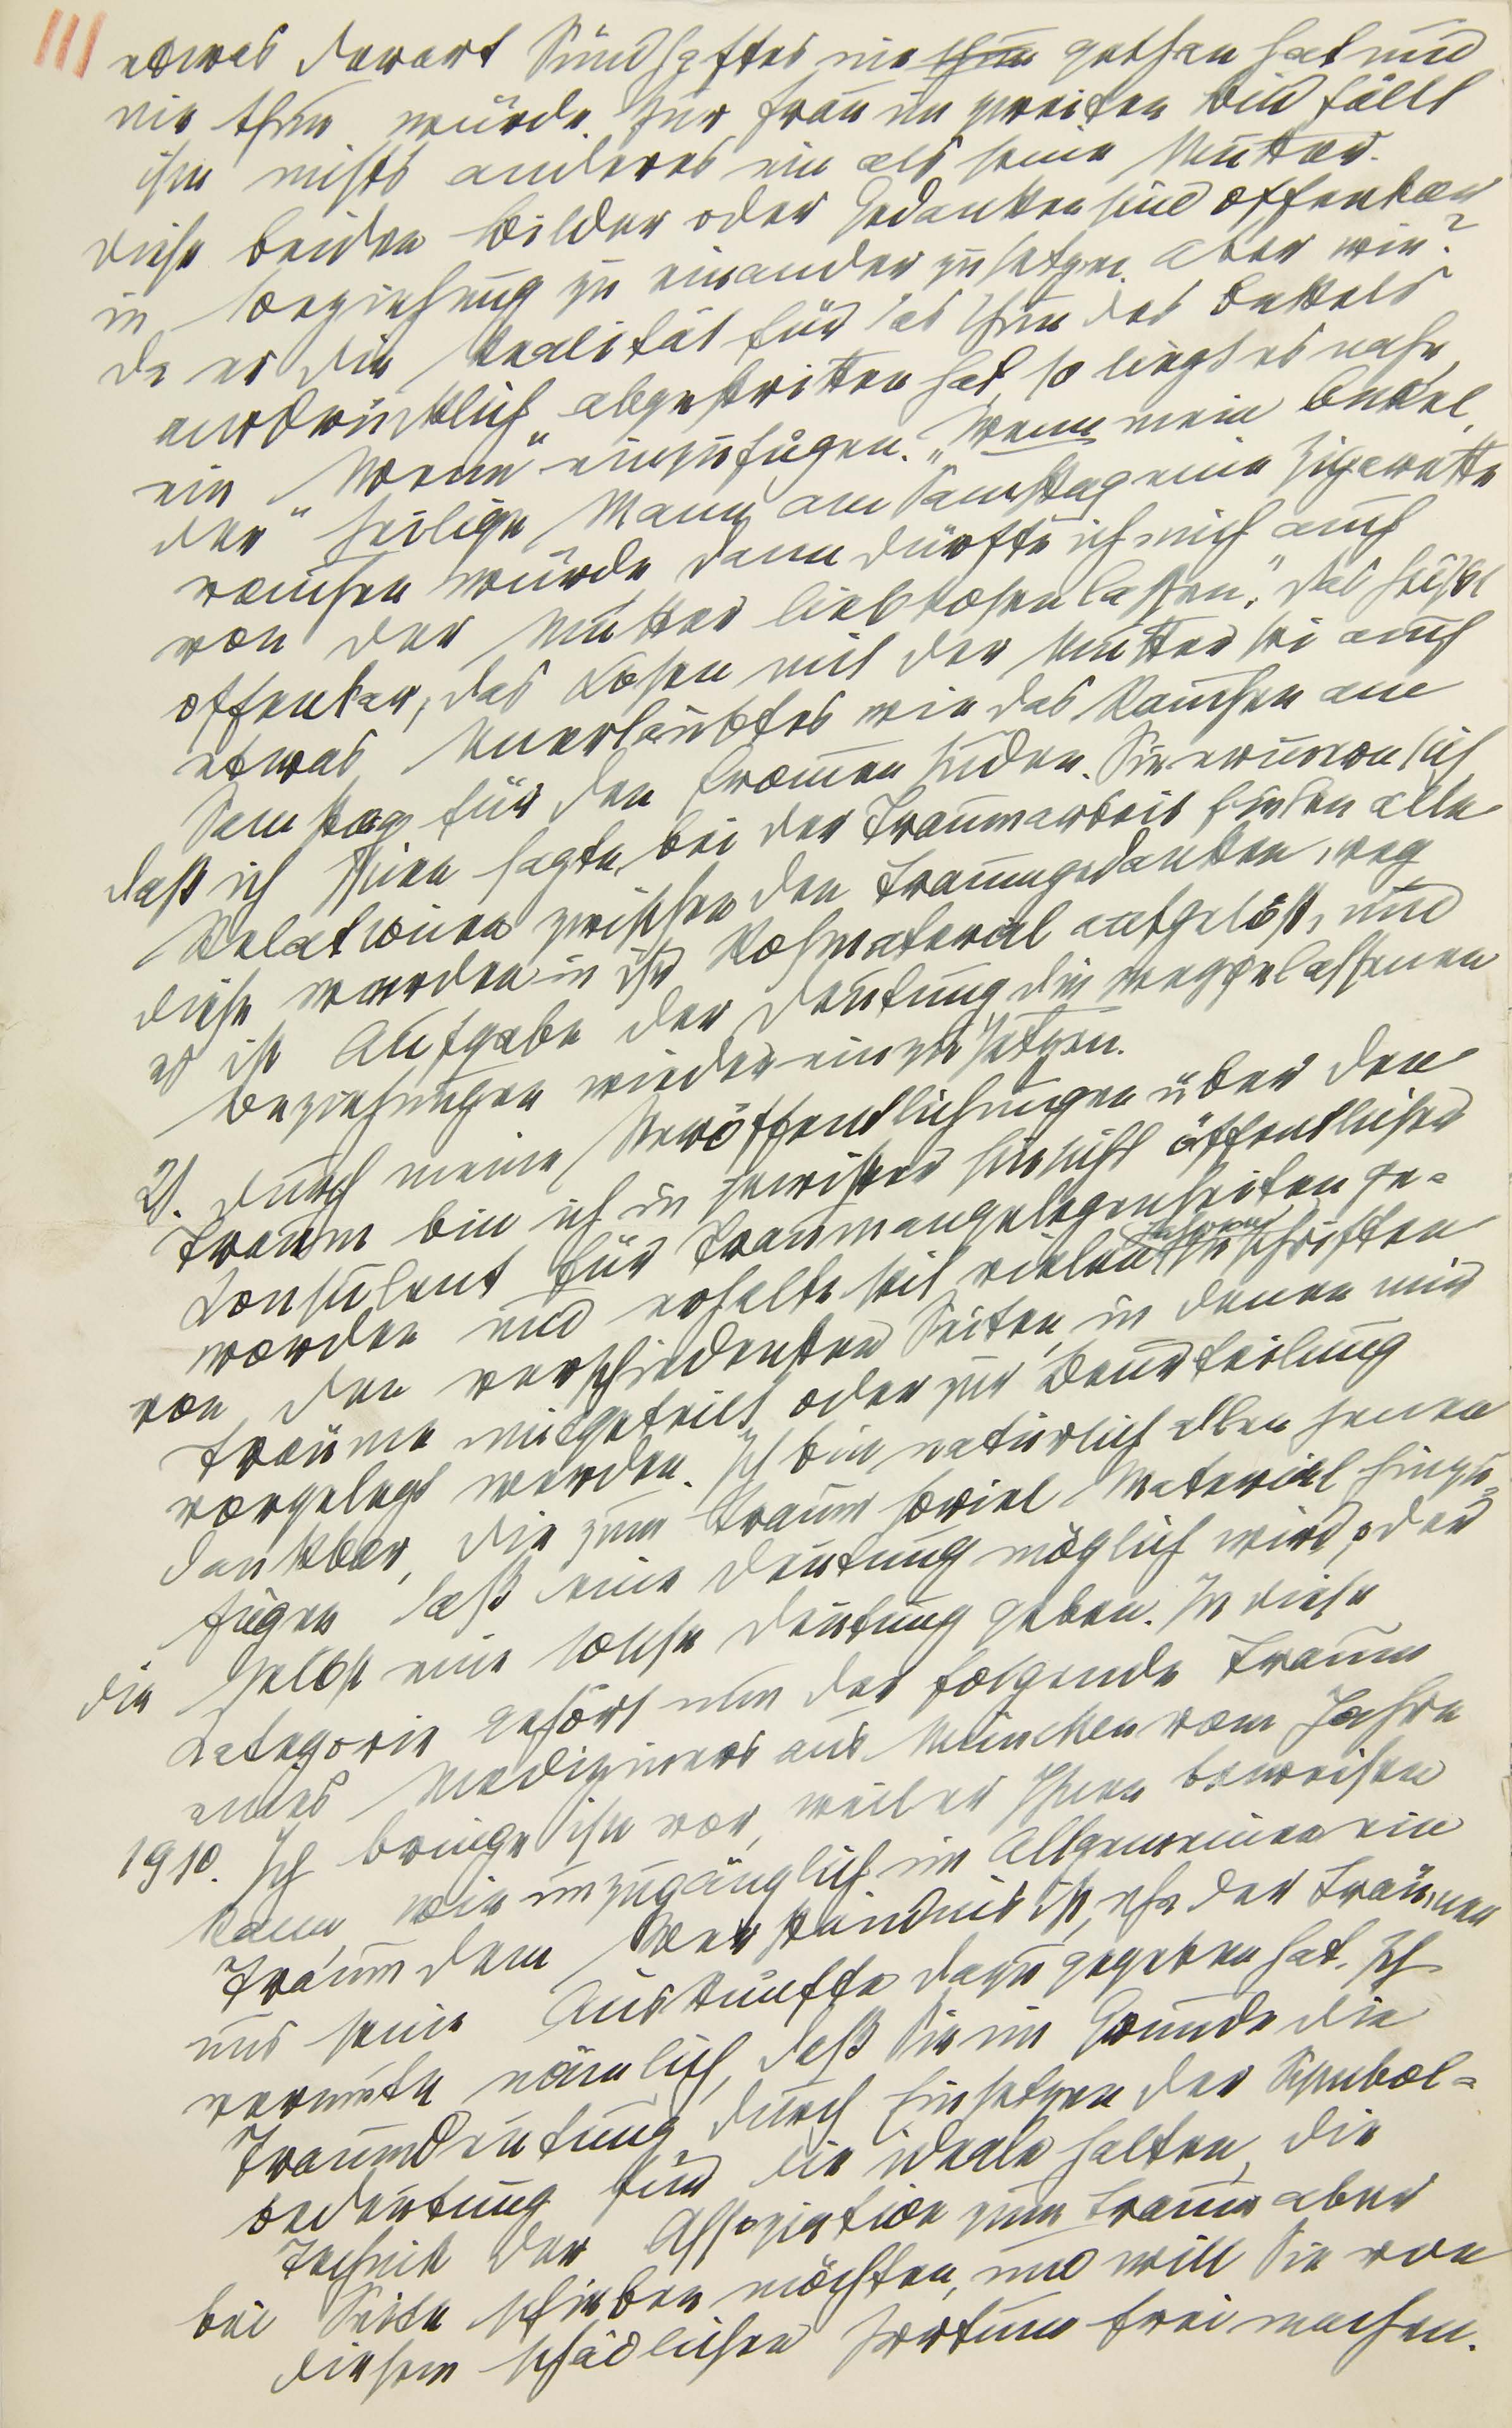 III
etwas derart Sündhaftes nie thun gethan hat und
nie thun würde. Zur Frau im zweiten Bild fällt
ihm nichts anderes ein als seine Mutter.
Diese beiden Bilder oder Gedanken sind offenbar
in Beziehung zu einander zu setzen. Aber wie?
Da er die Realität für das Thun des Onkels
ausdrücklich abgestritten hat, so liegt es nahe,
ein „Wenn" einzufügen. „Wenn mein Onkel,
der heilige Mann am Samstag eine Zigarette
rauchen würde, dann dürfte ich mich auch
von der Mutter liebkosen lassen." Das heißt
offenbar, das Kosen mit der Mutter sei auch
etwas Unerlaubtes wie das Rauchen am
Samstag für den frommen Juden. Sie erinnern sich
daß ich Ihnen sagte, bei der Traumarbeit fielen alle
Relationen zwischen den Traumgedanken weg,
diese werden in ihr Rohmaterial aufgelöst, und
es ist Aufgabe der Deutung die weggelassenen
Beziehungen wieder einzusetzen.
2). Durch meine Veröffentlichungen über den
Traum bin ich in gewisser Hinsicht öffentlicher
Konsulent für Traumangelegenheiten ge-
worden und erhalte seit vielen Jahren Zuschriften
von den verschiedensten Seiten, in denen mir
Träume mitgeteilt oder zur Beurteilung
vorgelegt werden. Ich bin natürlich allen jenen
dankbar, die zum Traum soviel Material hinzu-
fügen daß eine Deutung möglich wird, oder
die selbst eine solche Deutung geben. In diese
Kategorie gehört nun der folgende Traum
eines Mediziners aus München vom Jahre
1910. Ich bringe ihn vor, weil er Ihnen beweisen
kann, wie unzugänglich im Allgemeinen ein
Traum dem Verständnis ist, ehe der Träumer
uns seine Auskünfte dazu gegeben hat. Ich
vermute nämlich, daß Sie im Grunde die
Traumdeutung durch Einsetzen der Symbol-
bedeutung für die ideale halten, die
Technik der Assoziation zum Traum aber
bei Seite schieben möchten, und will Sie von
diesem schädlichen Irrtum frei machen.